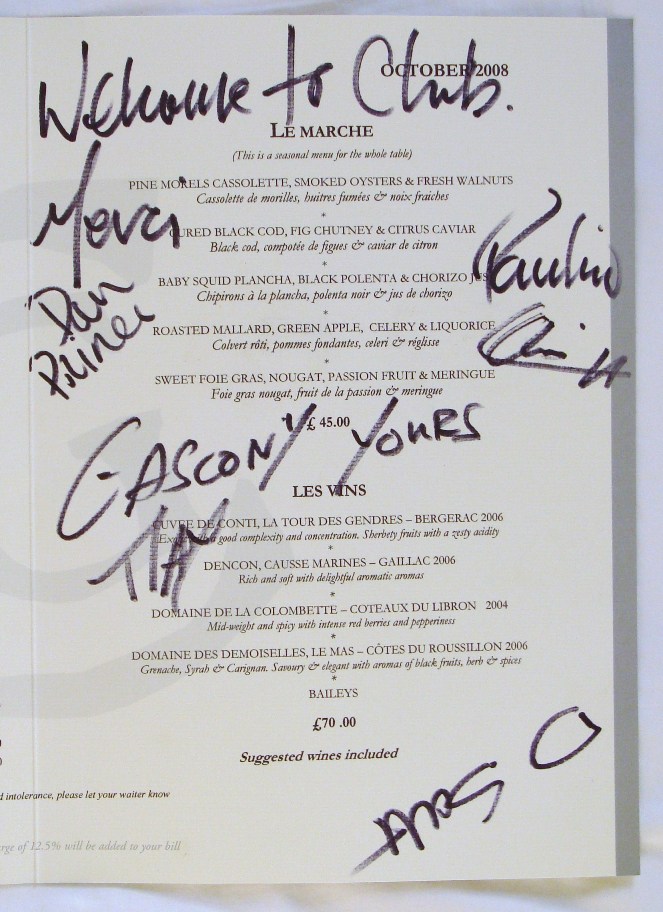 Welcome to Club.
OCTOBER 2008
LE MARCHE
(This is a seasonal menu for the whole table)
PINE MORELS CASSOLETTE, SMOKED OYSTERS & FRESH WALNUTS
Cassolette de morilles, huitres fumées & noix fraiches
*
Merci
CURED BLACK COD, FIG CHUTNEY & CITRUS CAVIAR
Black cod, compotée de figues & caviar de citron
*
BABY SQUID PLANCHA, BLACK POLENTA & CHORIZO JUS
Chipirons à la plancha, polenta noir & jus de chorizo
*
Dan
Prince
ROASTED MALLARD, GREEN APPLE, CELERY & LIQUORICE
Colvert rôti, pommes fondantes, celeri & réglisse
*
SWEET FOIE GRAS, NOUGAT, PASSION FRUIT & MERINGUE
Foie gras nougat, fruit de la passion & meringue
£ 45.00
GASCONY YOURS
LES VINS
CUVEE DE CONTI, LA TOUR DES GENDRES – BERGERAC 2006
with a good complexity and concentration. Sherbety fruits with a zesty acidity
*
DENCON, CAUSSE MARINES – GAILLAC 2006
Rich and soft with delightful aromatic aromas
*
DOMAINE DE LA COLOMBETTE – COTEAUX DU LIBRON 2004
Mid-weight and spicy with intense red berries and pepperiness
*
DOMAINE DES DEMOISELLES, LE MAS – CÔTES DU ROUSSILLON 2006
Grenache, Syrah & Carignan. Savoury & elegant with aromas of black fruits, herb & spices
*
BAILEYS
£70 .00
Suggested wines included
intolerance, please let your waiter know
of 12.5% will be added to your bill